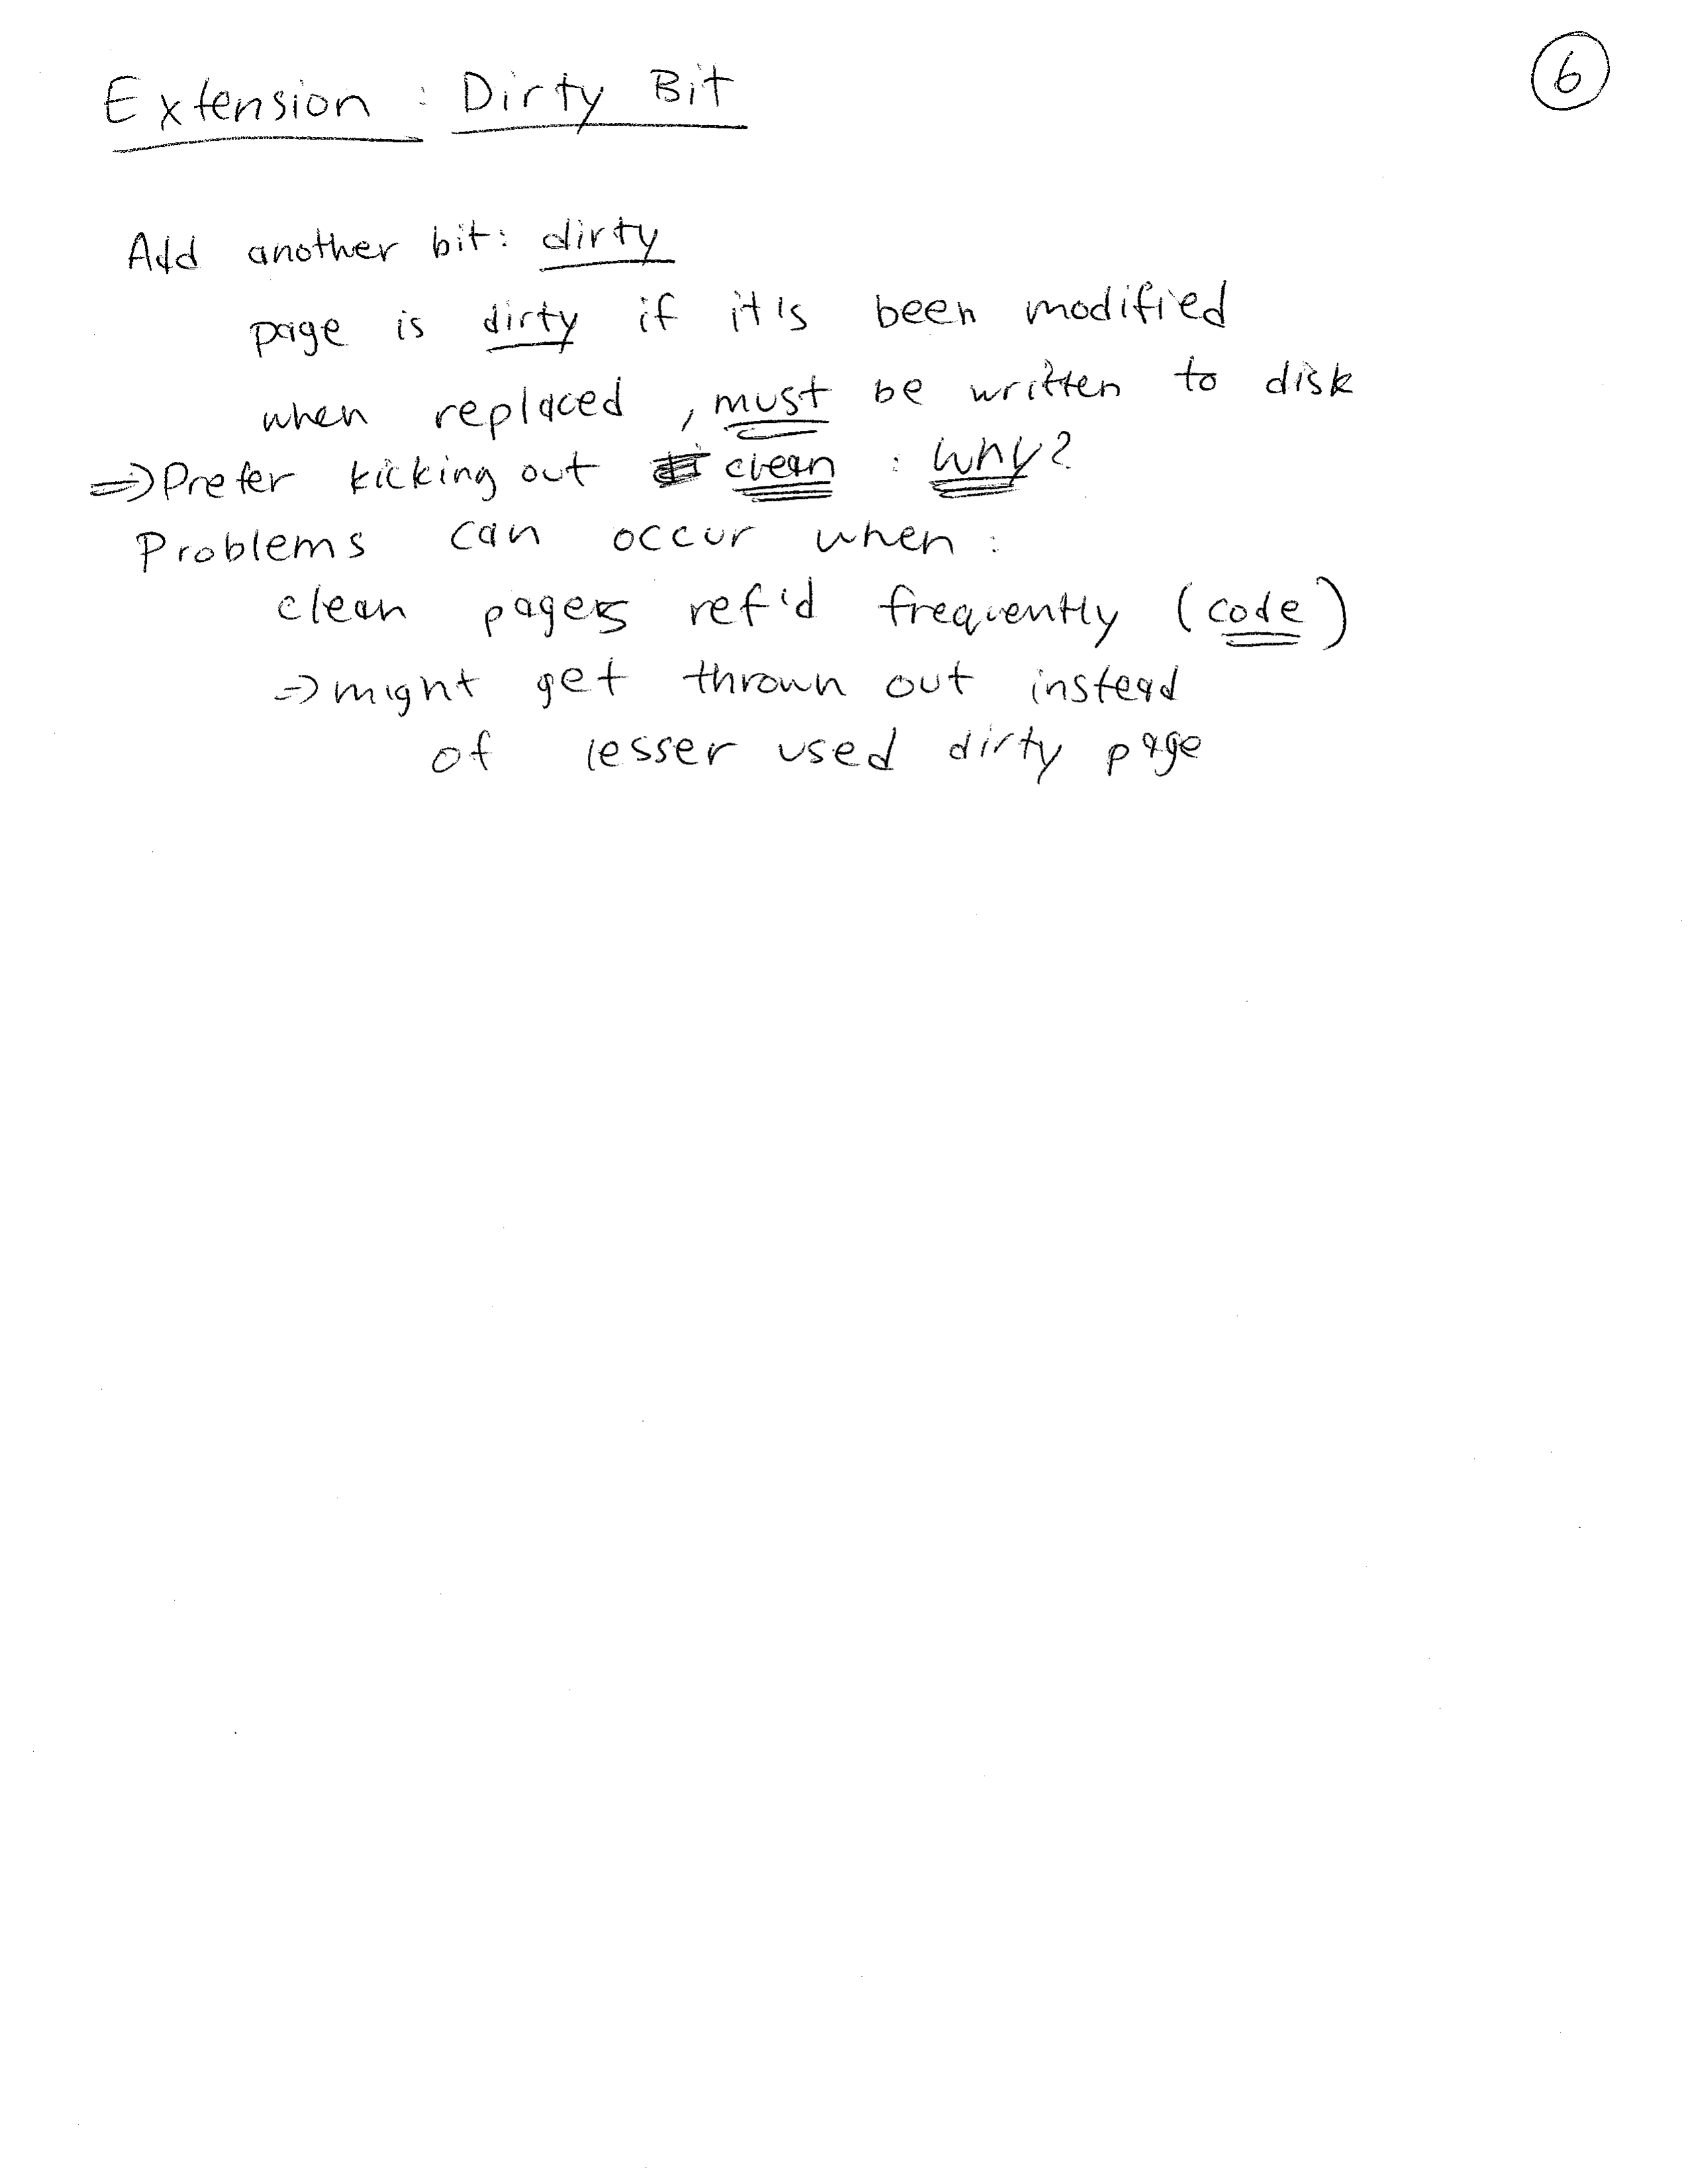 Extension : Dirty Bit
6
Add another bit: dirty
page is dirty if it's been modified
when replaced, must be written to disk
⇒ Prefer kicking out clean : why?
Problems can occur when:
clean pages ref'd frequently (code)
⇒ might get thrown out instead
of lesser used dirty page